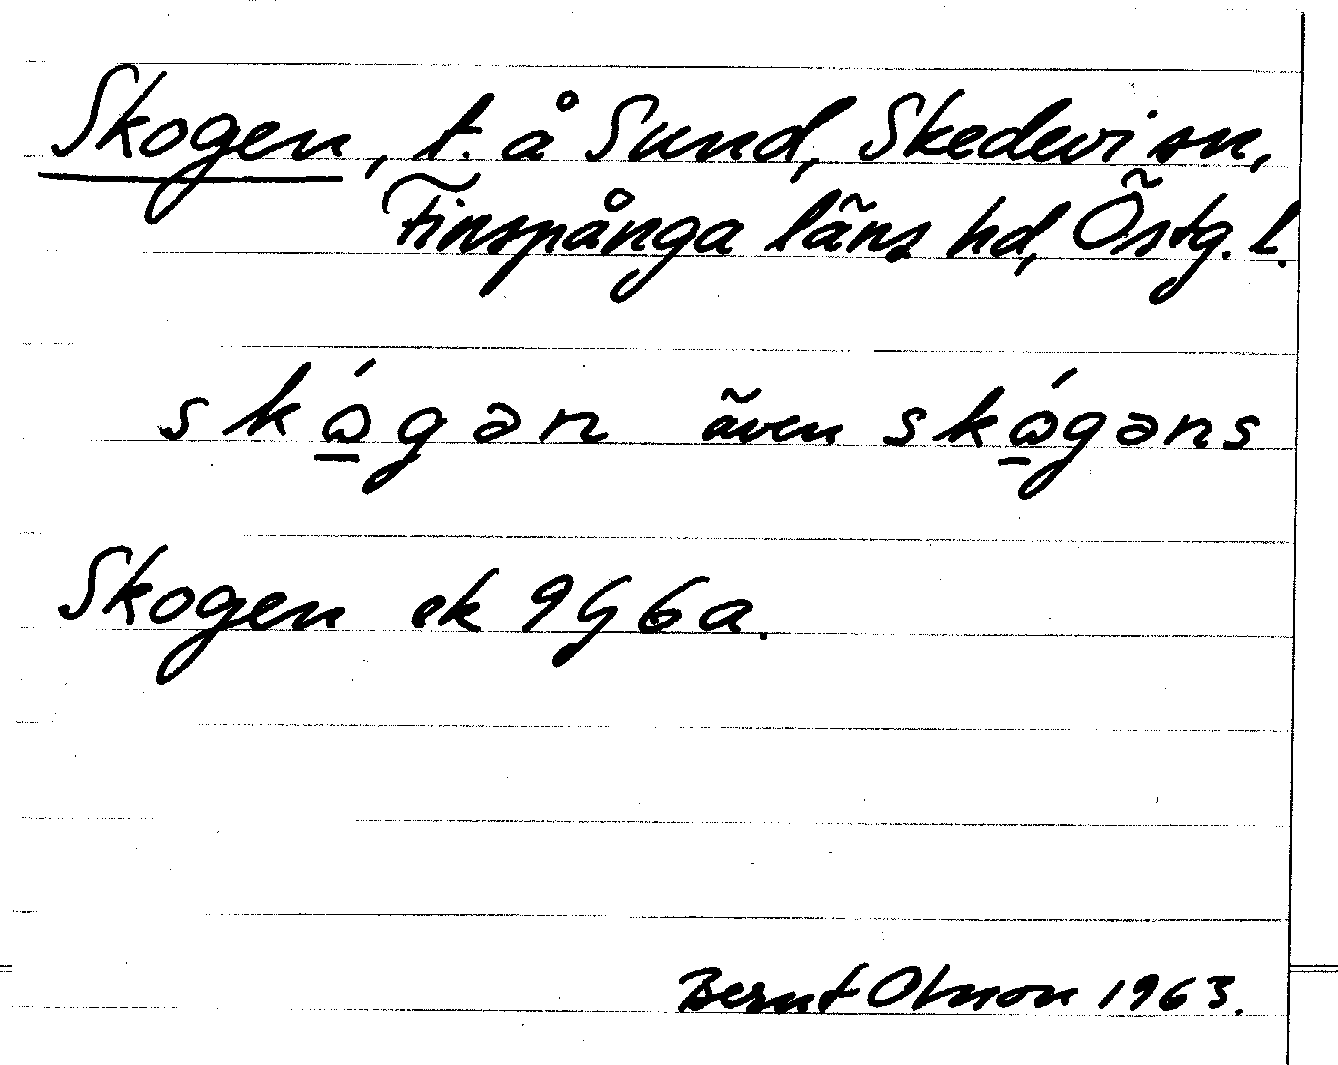 Skogen, t. å Sund, Skedevi sn,
Finspånga läns hd, Östg. l.
skώ̱gən även skώ̱gəns
Skogen ek 9G6a.
Bernt Olsson 1963.